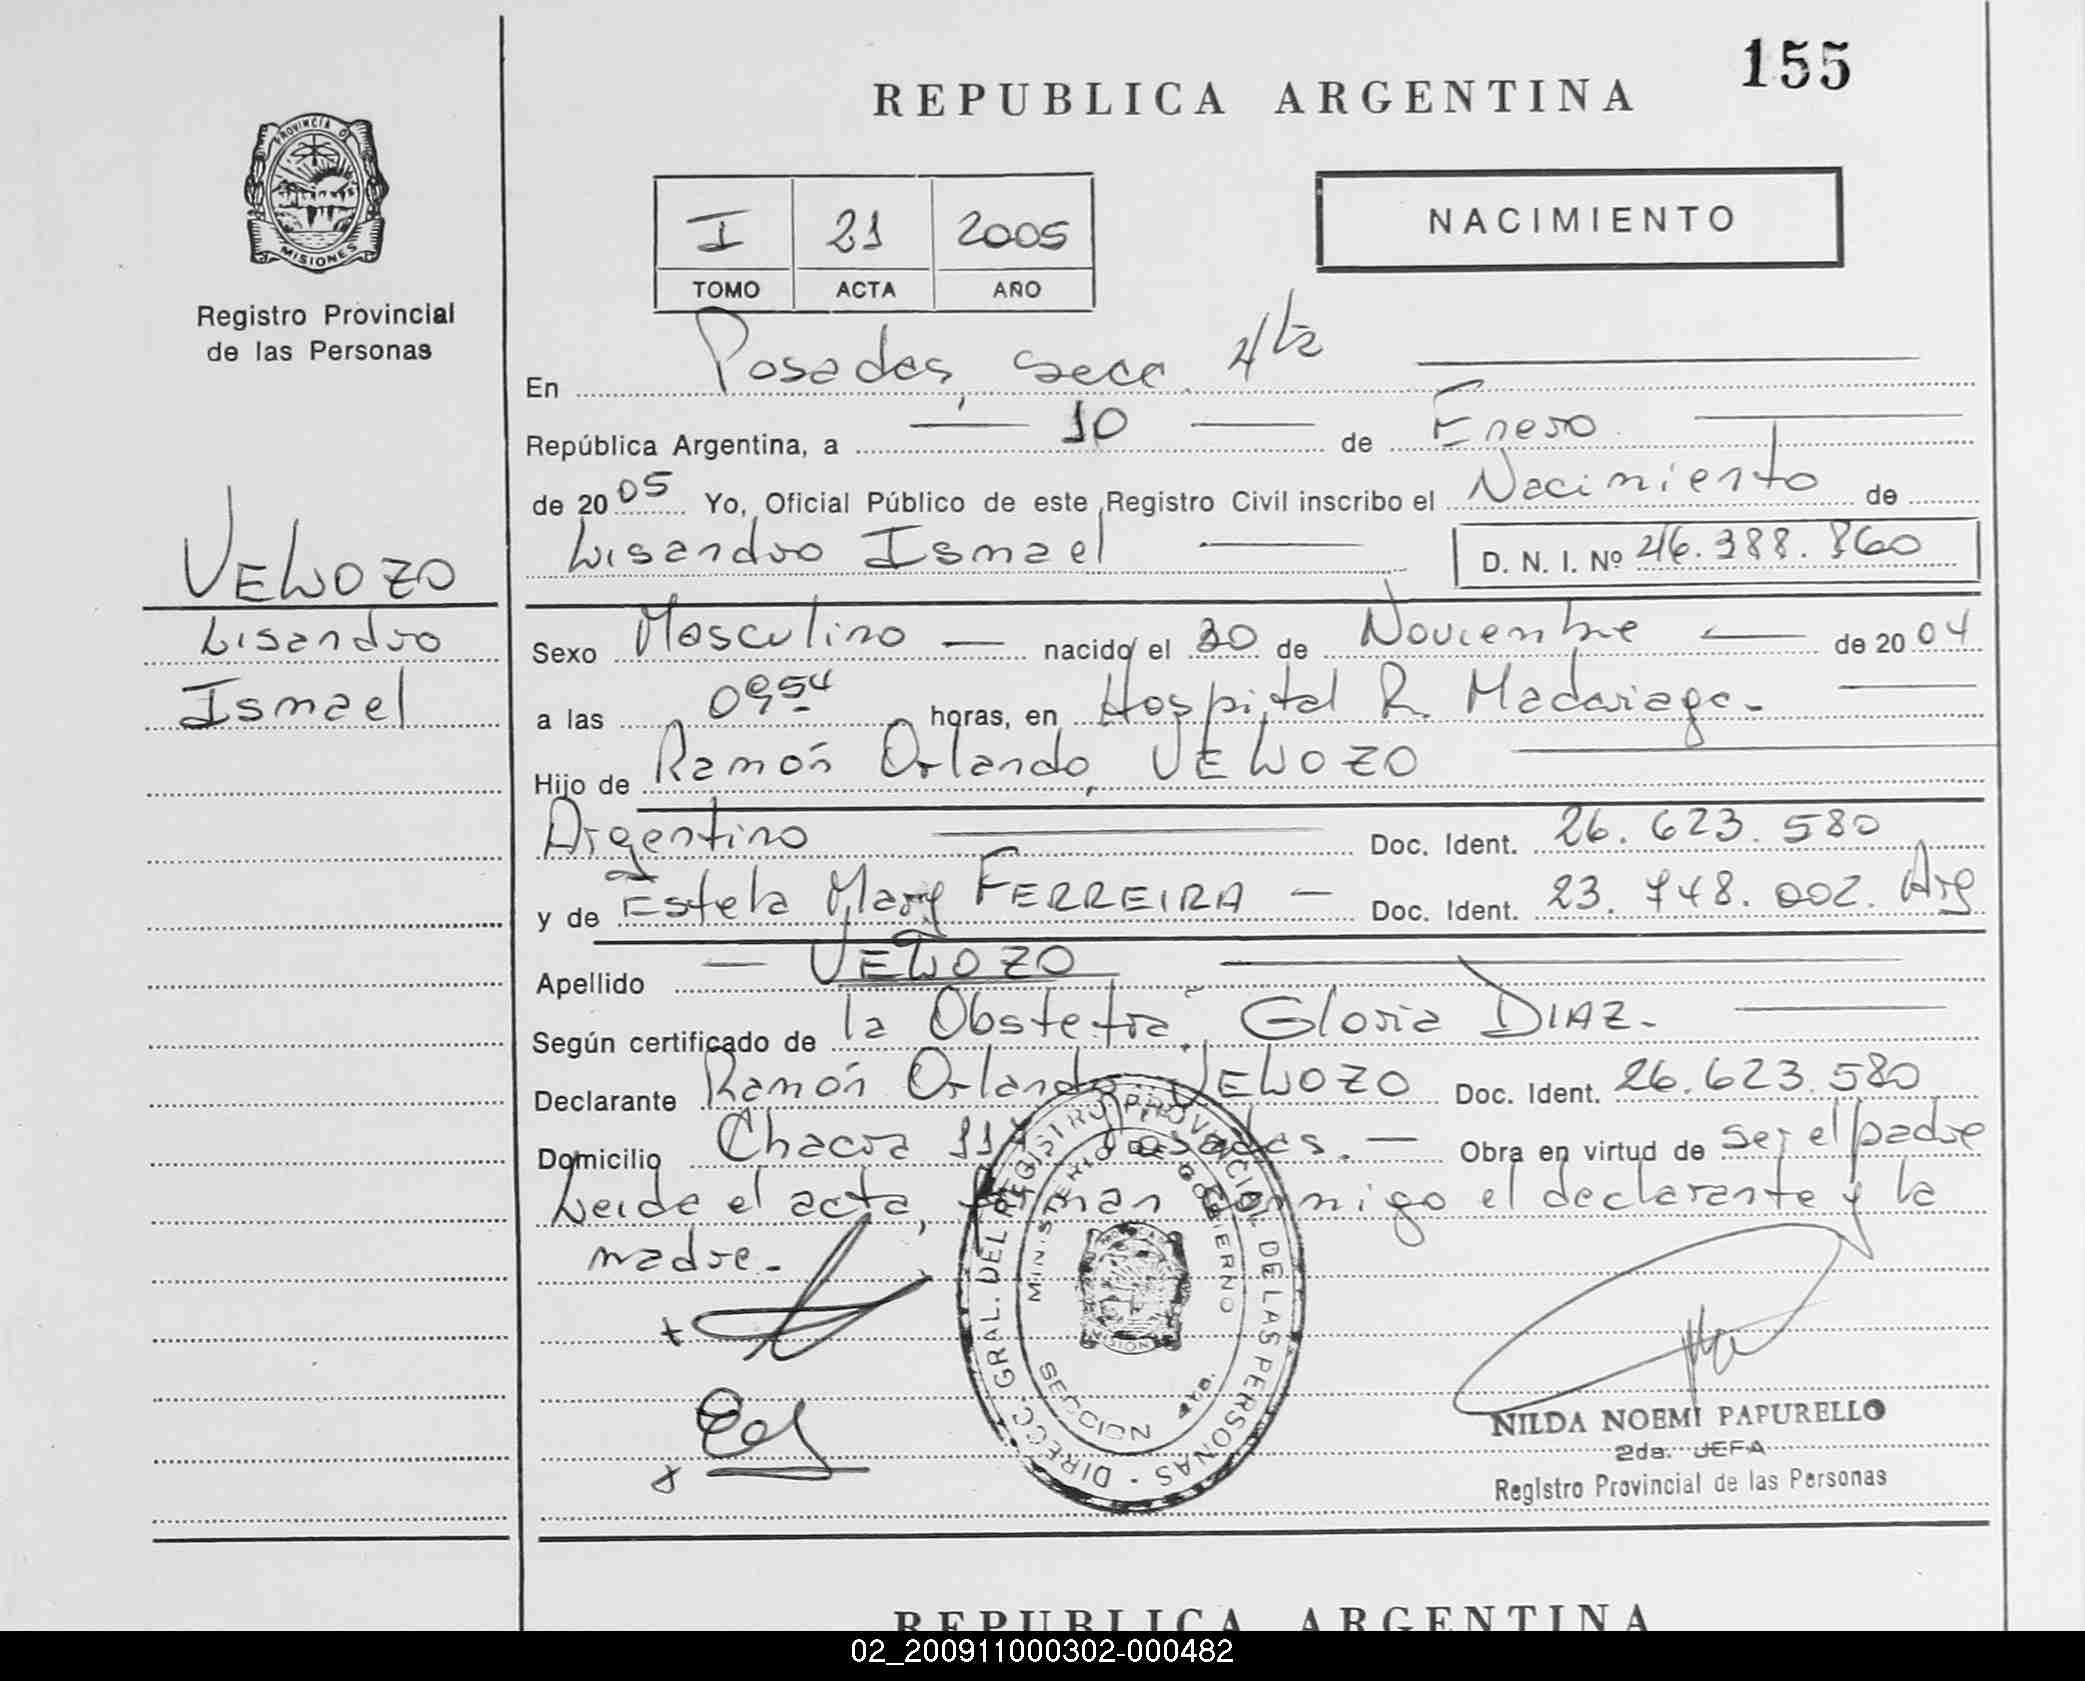 155
REPUBLICA ARGENTINA
PROVINCIA D
MISIONES
Registro Provincial
de las Personas
I 21 2005
TOMO ACTA AÑO
NACIMIENTO
En Posadas, Secc. 4ta
República Argentina, a 10 de Enero
de 2005 Yo, Oficial Público de este Registro Civil inscribo el Nacimiento de
Lisandro Ismael D. N. I. Nº 46.388.860
VELOZO
Lisandro
Ismael
Sexo Masculino nacido el 30 de Noviembre de 2004
a las 0954 horas, en Hospital R. Madariaga.-
Hijo de Ramón Orlando, VELOZO
Argentino Doc. Ident. 26.623.580
y de Estela Mary FERREIRA Doc. Ident. 23.748.002. Arg
Apellido VELOZO
Según certificado de la Obstetra, Gloria DIAZ.-
Declarante Ramón Orlando VELOZO Doc. Ident. 26.623.580
Domicilio Chacra 11 Posadas.- Obra en virtud de ser el padre
Leida el acta, firman conmigo el declarante y la
madre.-
DIRECC. GRAL. DEL REGISTRO PROVINCIAL DE LAS PERSONAS -
MINISTERIO DE GOBIERNO
SECCION 4ta.
NILDA NOEMI PAPURELLO
2da. JEFA
Registro Provincial de las Personas
REPUBLICA ARGENTINA
02_200911000302-000482